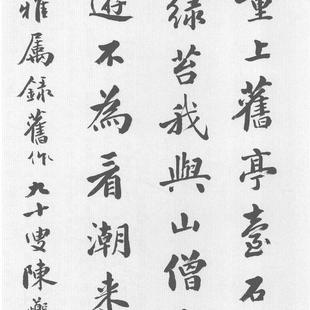 上舊亭臺石
綠苔我與山僧
遊不為看潮来
雅属録舊作九十叟陳